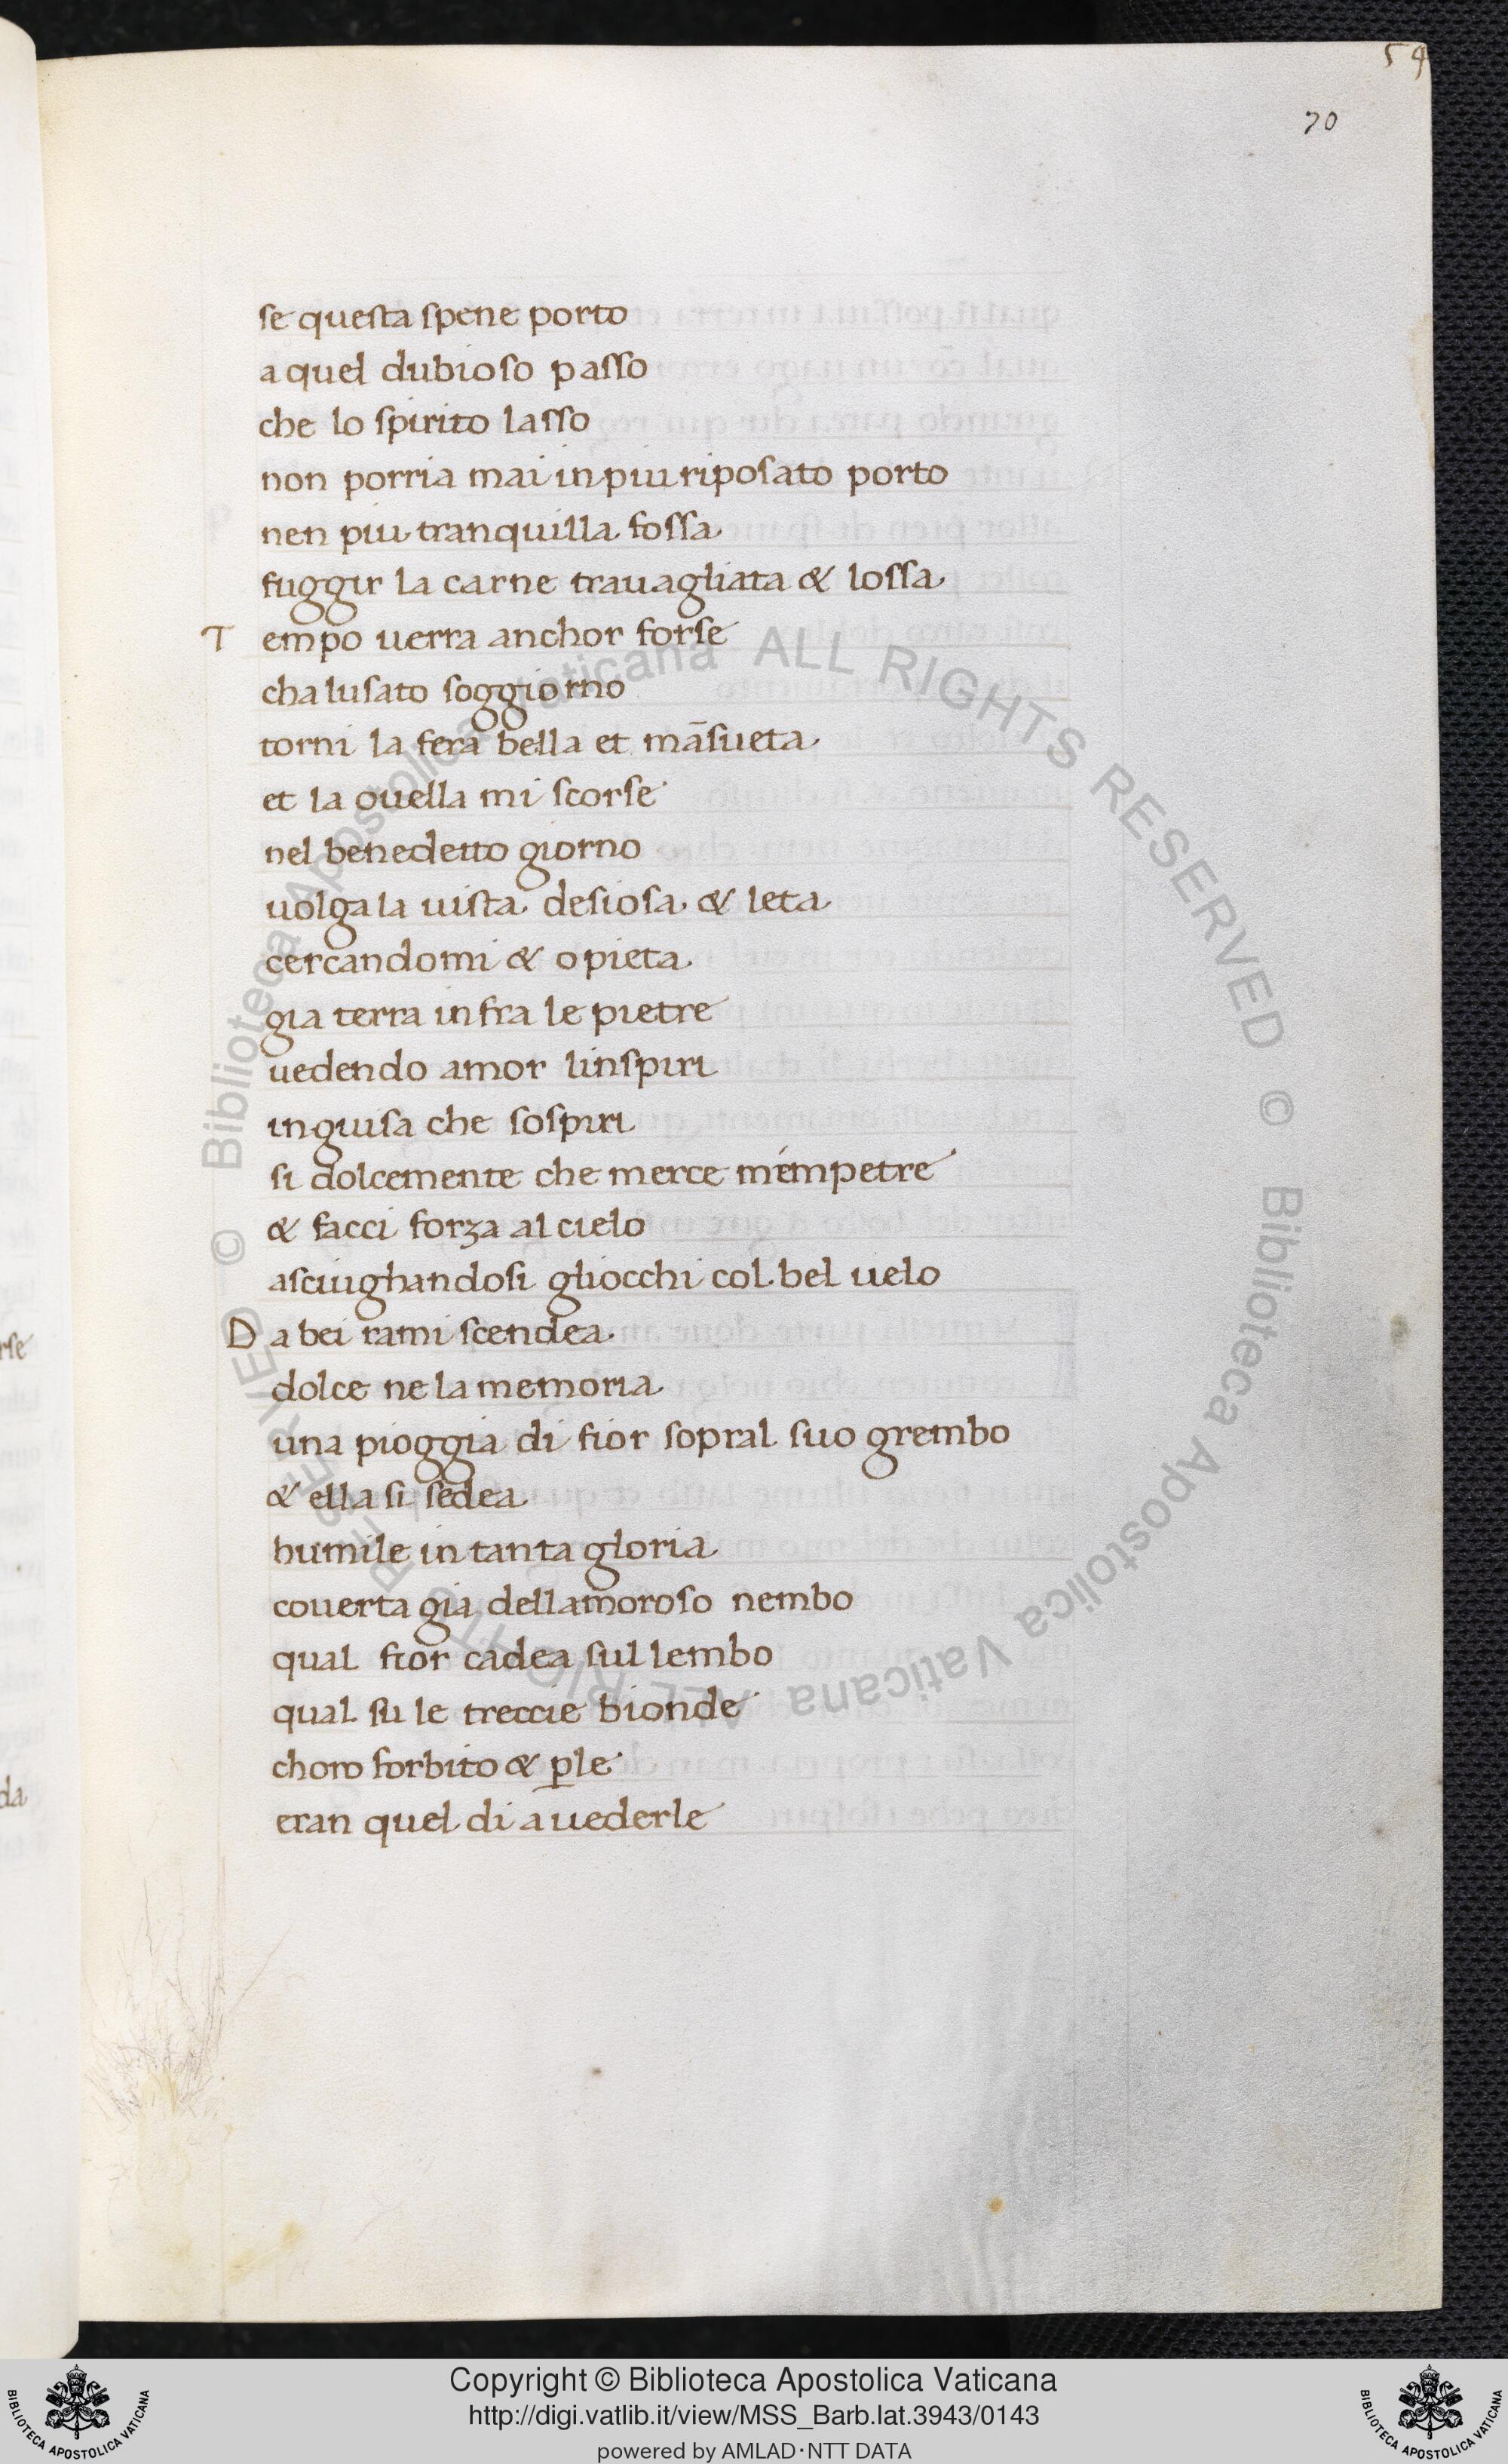 54
70
se questa spene porto
a quel dubioso passo
che lo spirito lasso
non porria mai in piu riposato porto
nen piu tranquilla fossa
fuggir la carne trauagliata & lossa
T empo uerra anchor forse
cha lusato soggiorno
torni la fera bella et mãsueta
et la ouella mi scorse
nel benedetto giorno
uolga la uista desiosa & leta
cercandomi & o pieta
gia terra in fra le pietre
uedendo amor linspiri
in guisa che sospiri
si dolcemente che merce mémpetre
& facci forza al cielo
asciughandosi gliocchi col bel uelo
D a bei rami scendea
dolce ne la memoria
una pioggia di fior sopral suo grembo
& ella si sedea
humile in tanta gloria
couerta gia dellamoroso nembo
qual fior cadea sul lembo
qual su le treccie bionde
choro forbito & ꝑle
eran quel di a uederle
rse
da
© Biblioteca Apostolica Vaticana ALL RIGHTS RESERVED © Biblioteca Apostolica Vaticana ALL RIGHTS RESERVED
Copyright © Biblioteca Apostolica Vaticana
http://digi.vatlib.it/view/MSS_Barb.lat.3943/0143
powered by AMLAD·NTT DATA
BIBLIOTECA APOSTOLICA VATICANA
BIBLIOTECA APOSTOLICA VATICANA